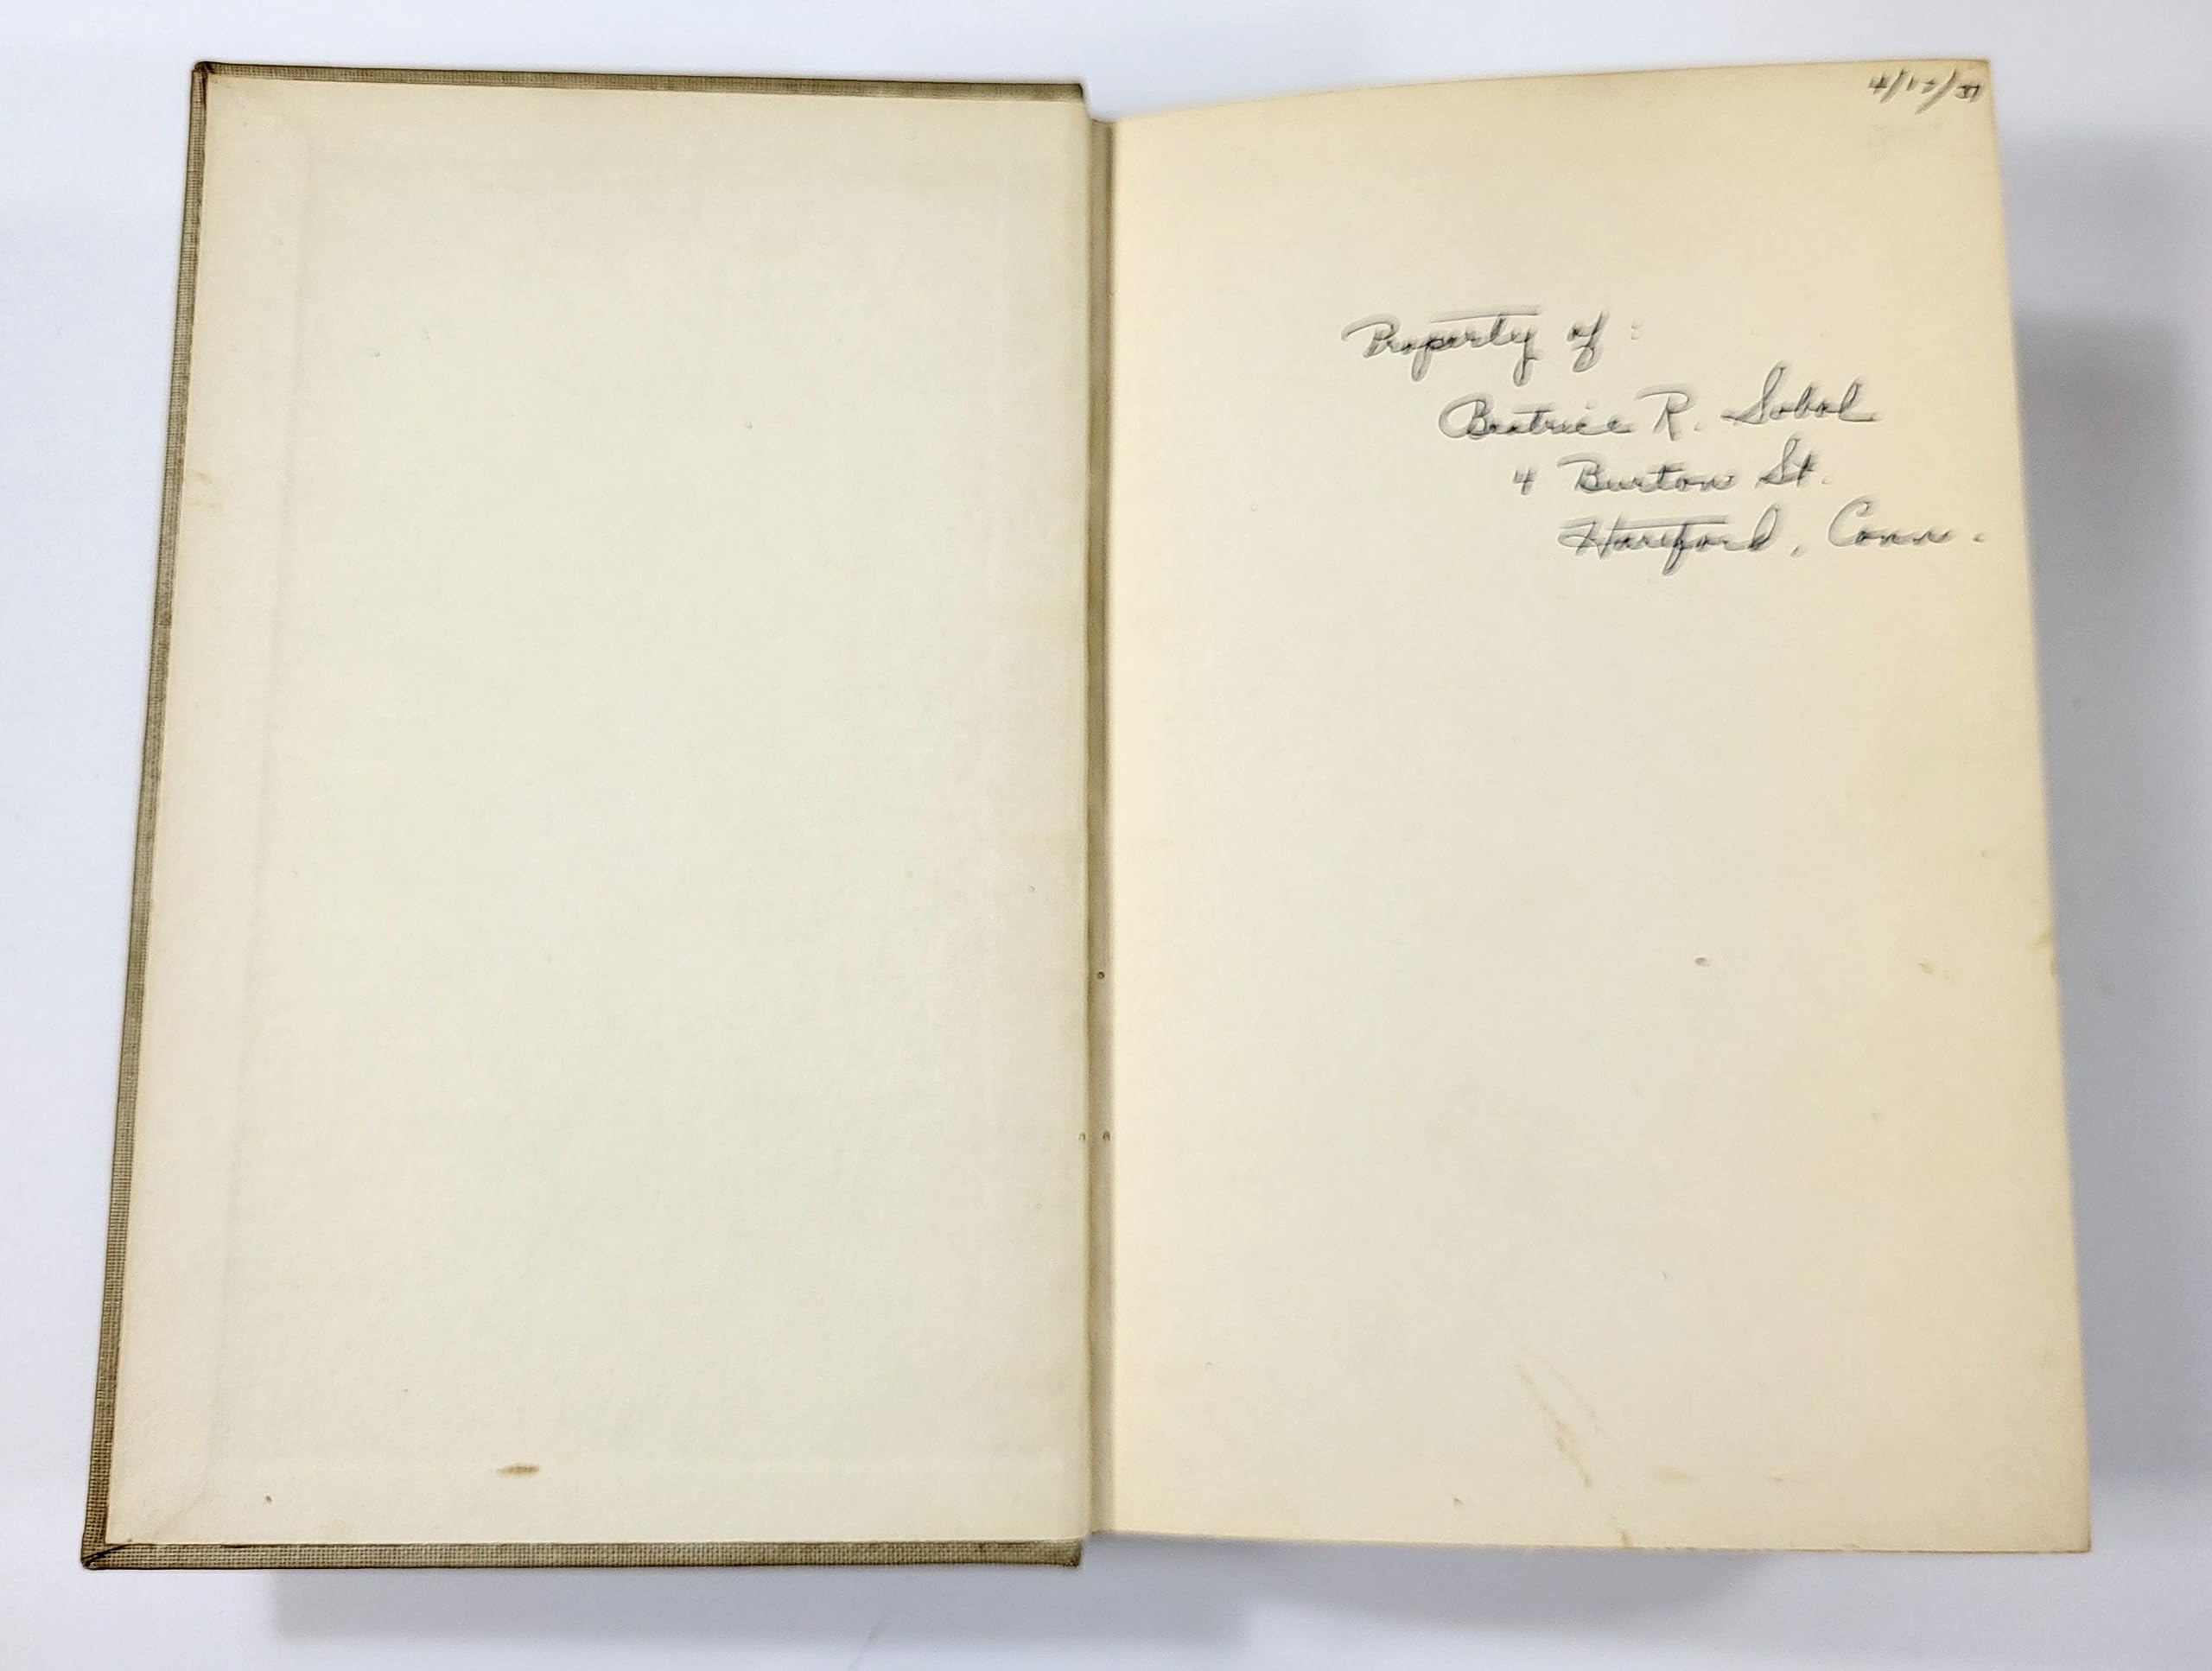 4/12/51
Property of:
Beatrice R. Sobol
4 Burton St.
Hartford, Conn.